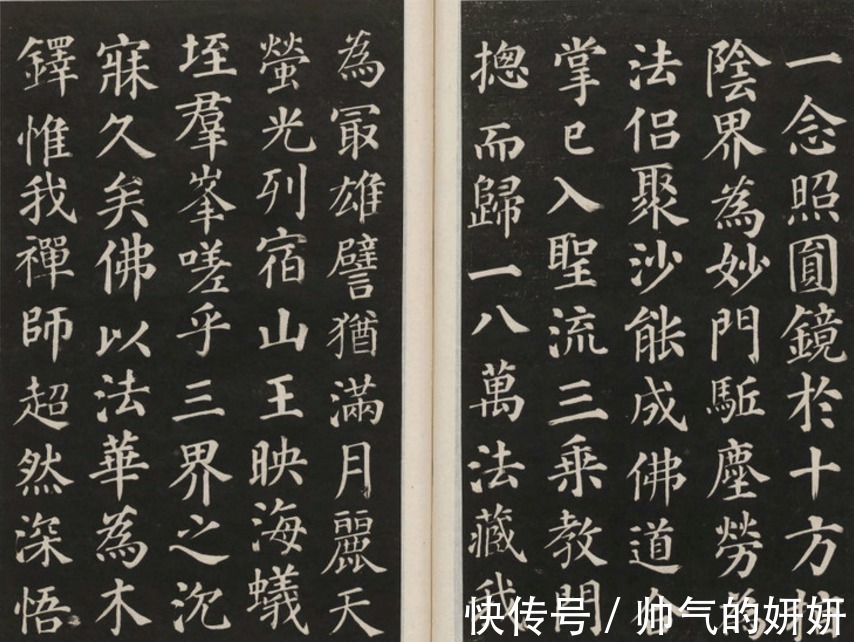 一念照圓鏡於十方
陰界為妙門駈塵勞為
法侶聚沙能成佛道合
掌已入聖流三乘教門
揔而歸一八萬法藏我
為冣雄譬猶滿月麗天
螢光列宿山王映海蟻
垤羣峯嗟乎三界之沉
寐久矣佛以法華為木
鐸惟我禪師超然深悟
快传号 / 帅气的妍妍